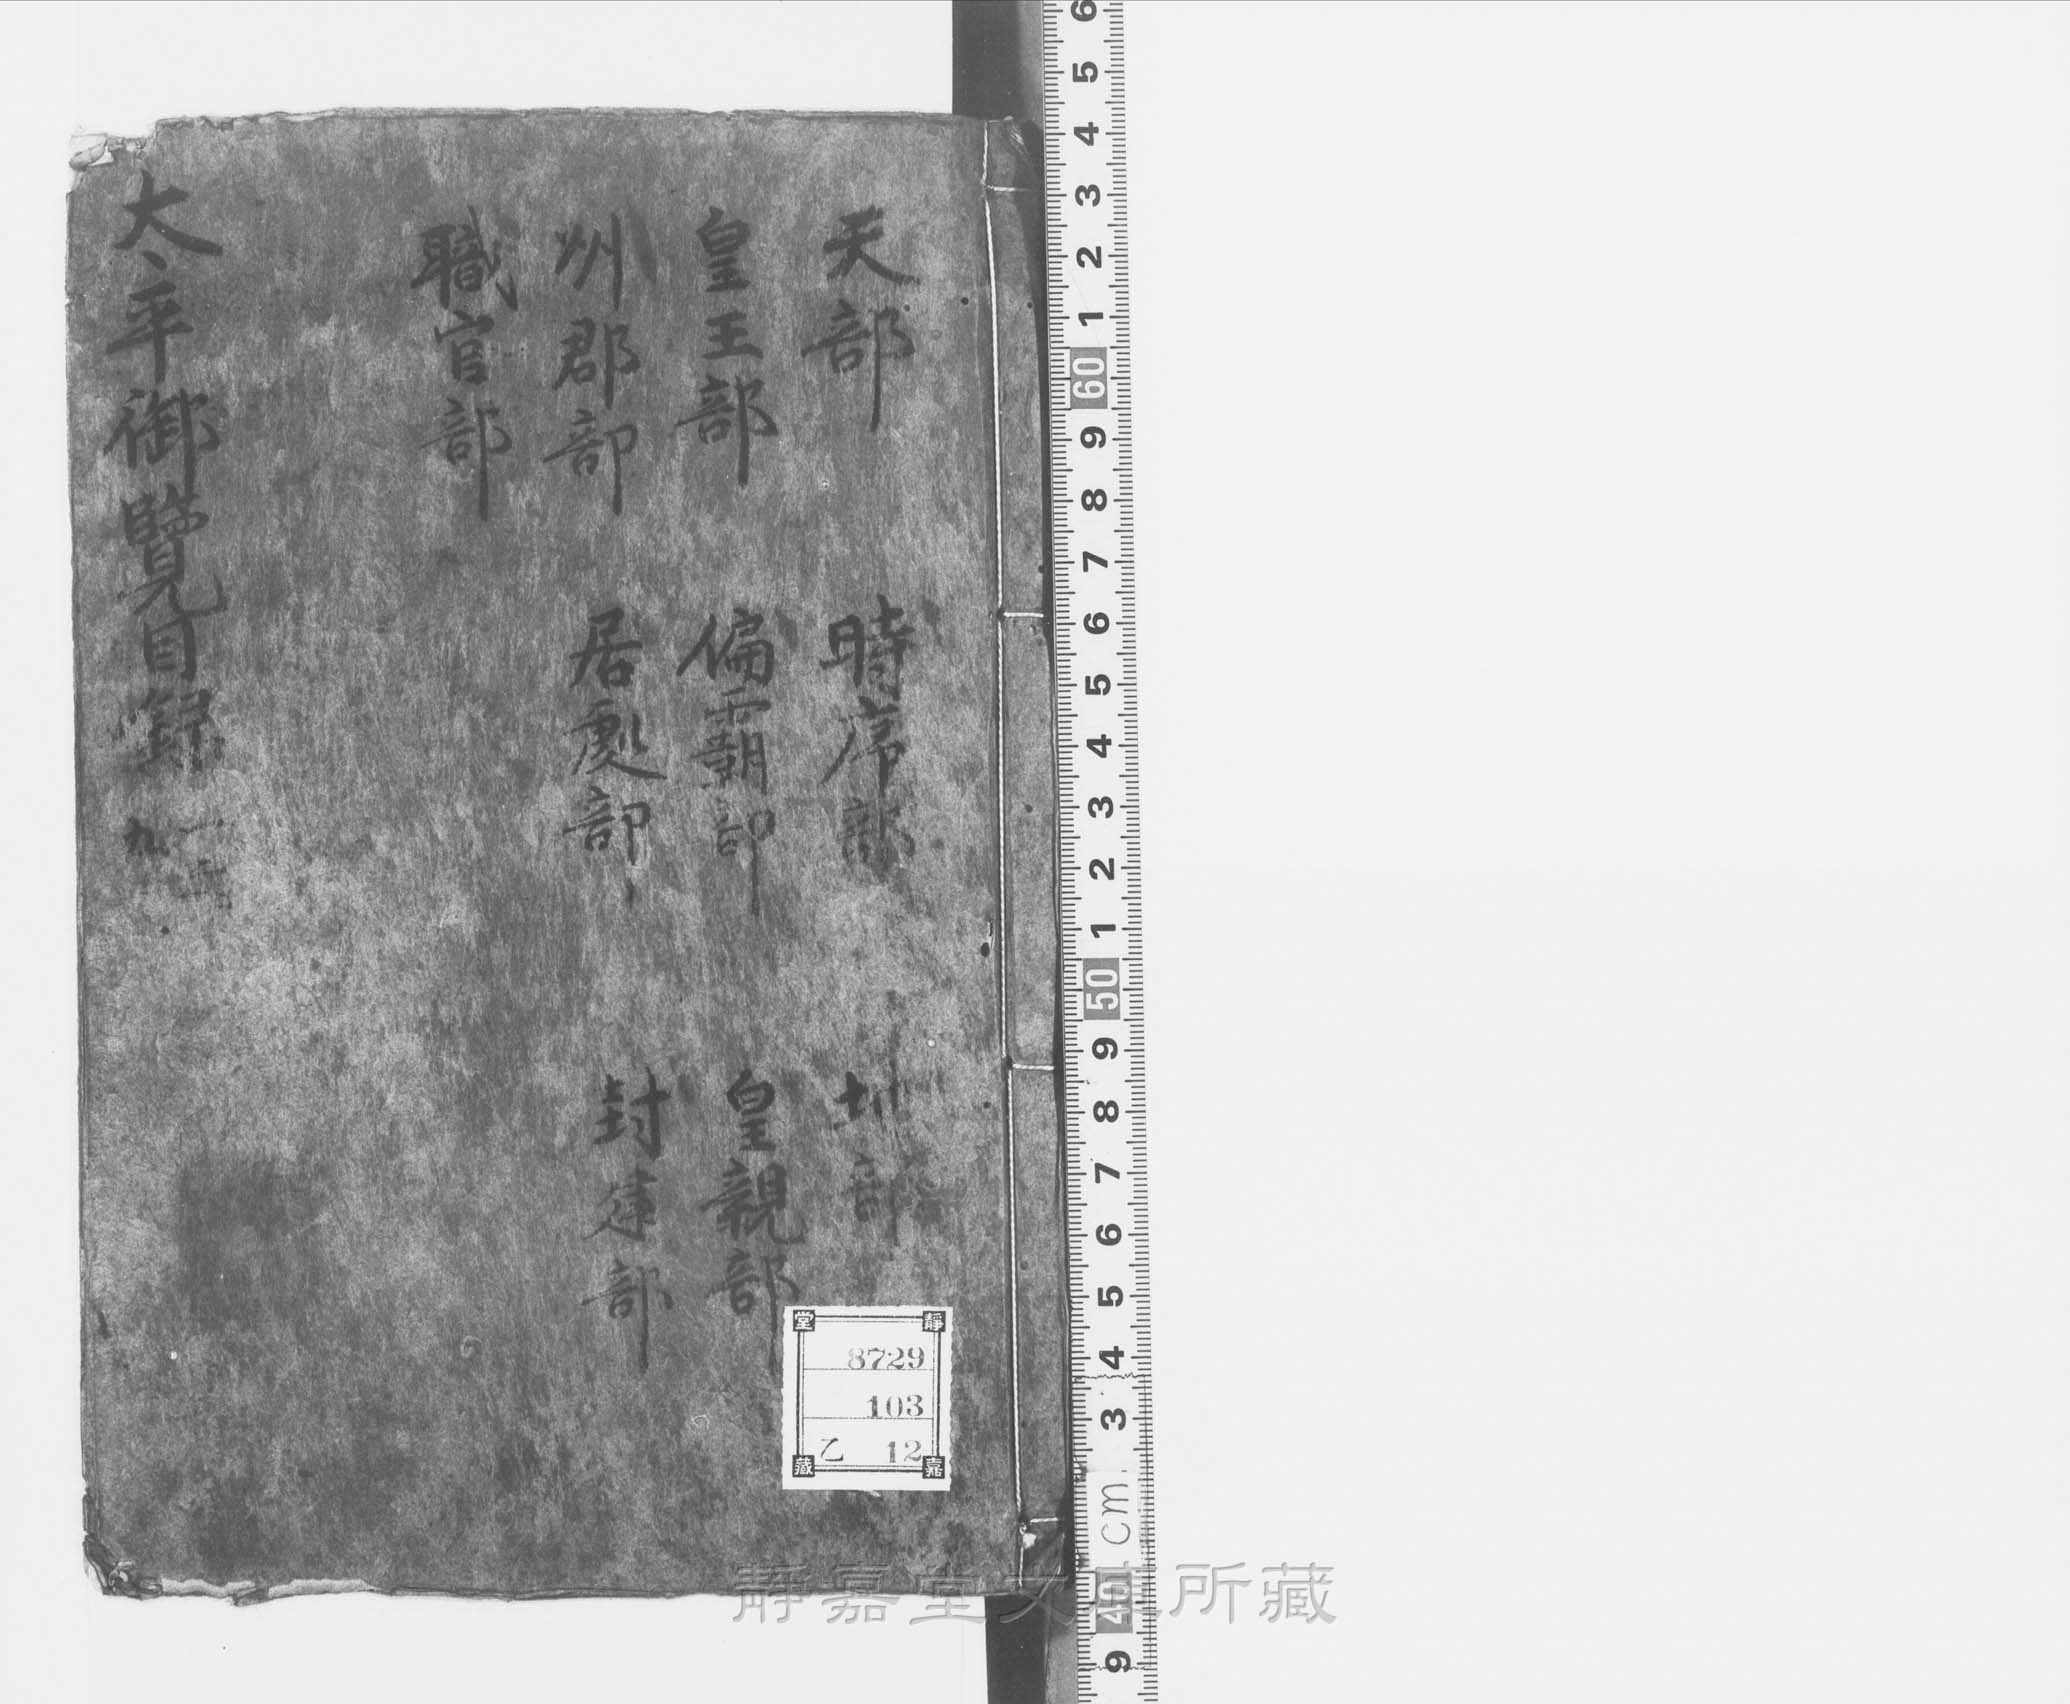 天部 時序部 地部
皇王部 偏霸部 皇親部
州郡部 居處部 封建部
職官部
太平御覽目錄
九
靜嘉堂藏
8729
103
乙 12
6 5 4 3 2 1 60 9 8 7 6 5 4 3 2 1 50 9 8 7 6 5 4 3 cm 40 9
静嘉堂文庫所藏